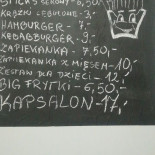 KRĄŻKI CEBULOWE - 3,-
HAMBURGER - 7,-
KEBABBURGER - 9,-
ZAPIEKANKA - 7,50,-
ZAPIEKANKA Z MIĘSEM - 10,-
ZESTAW DLA DZIECI - 12,-
BIG FRYTKI - 6,50,-
KAPSALON - 17,-